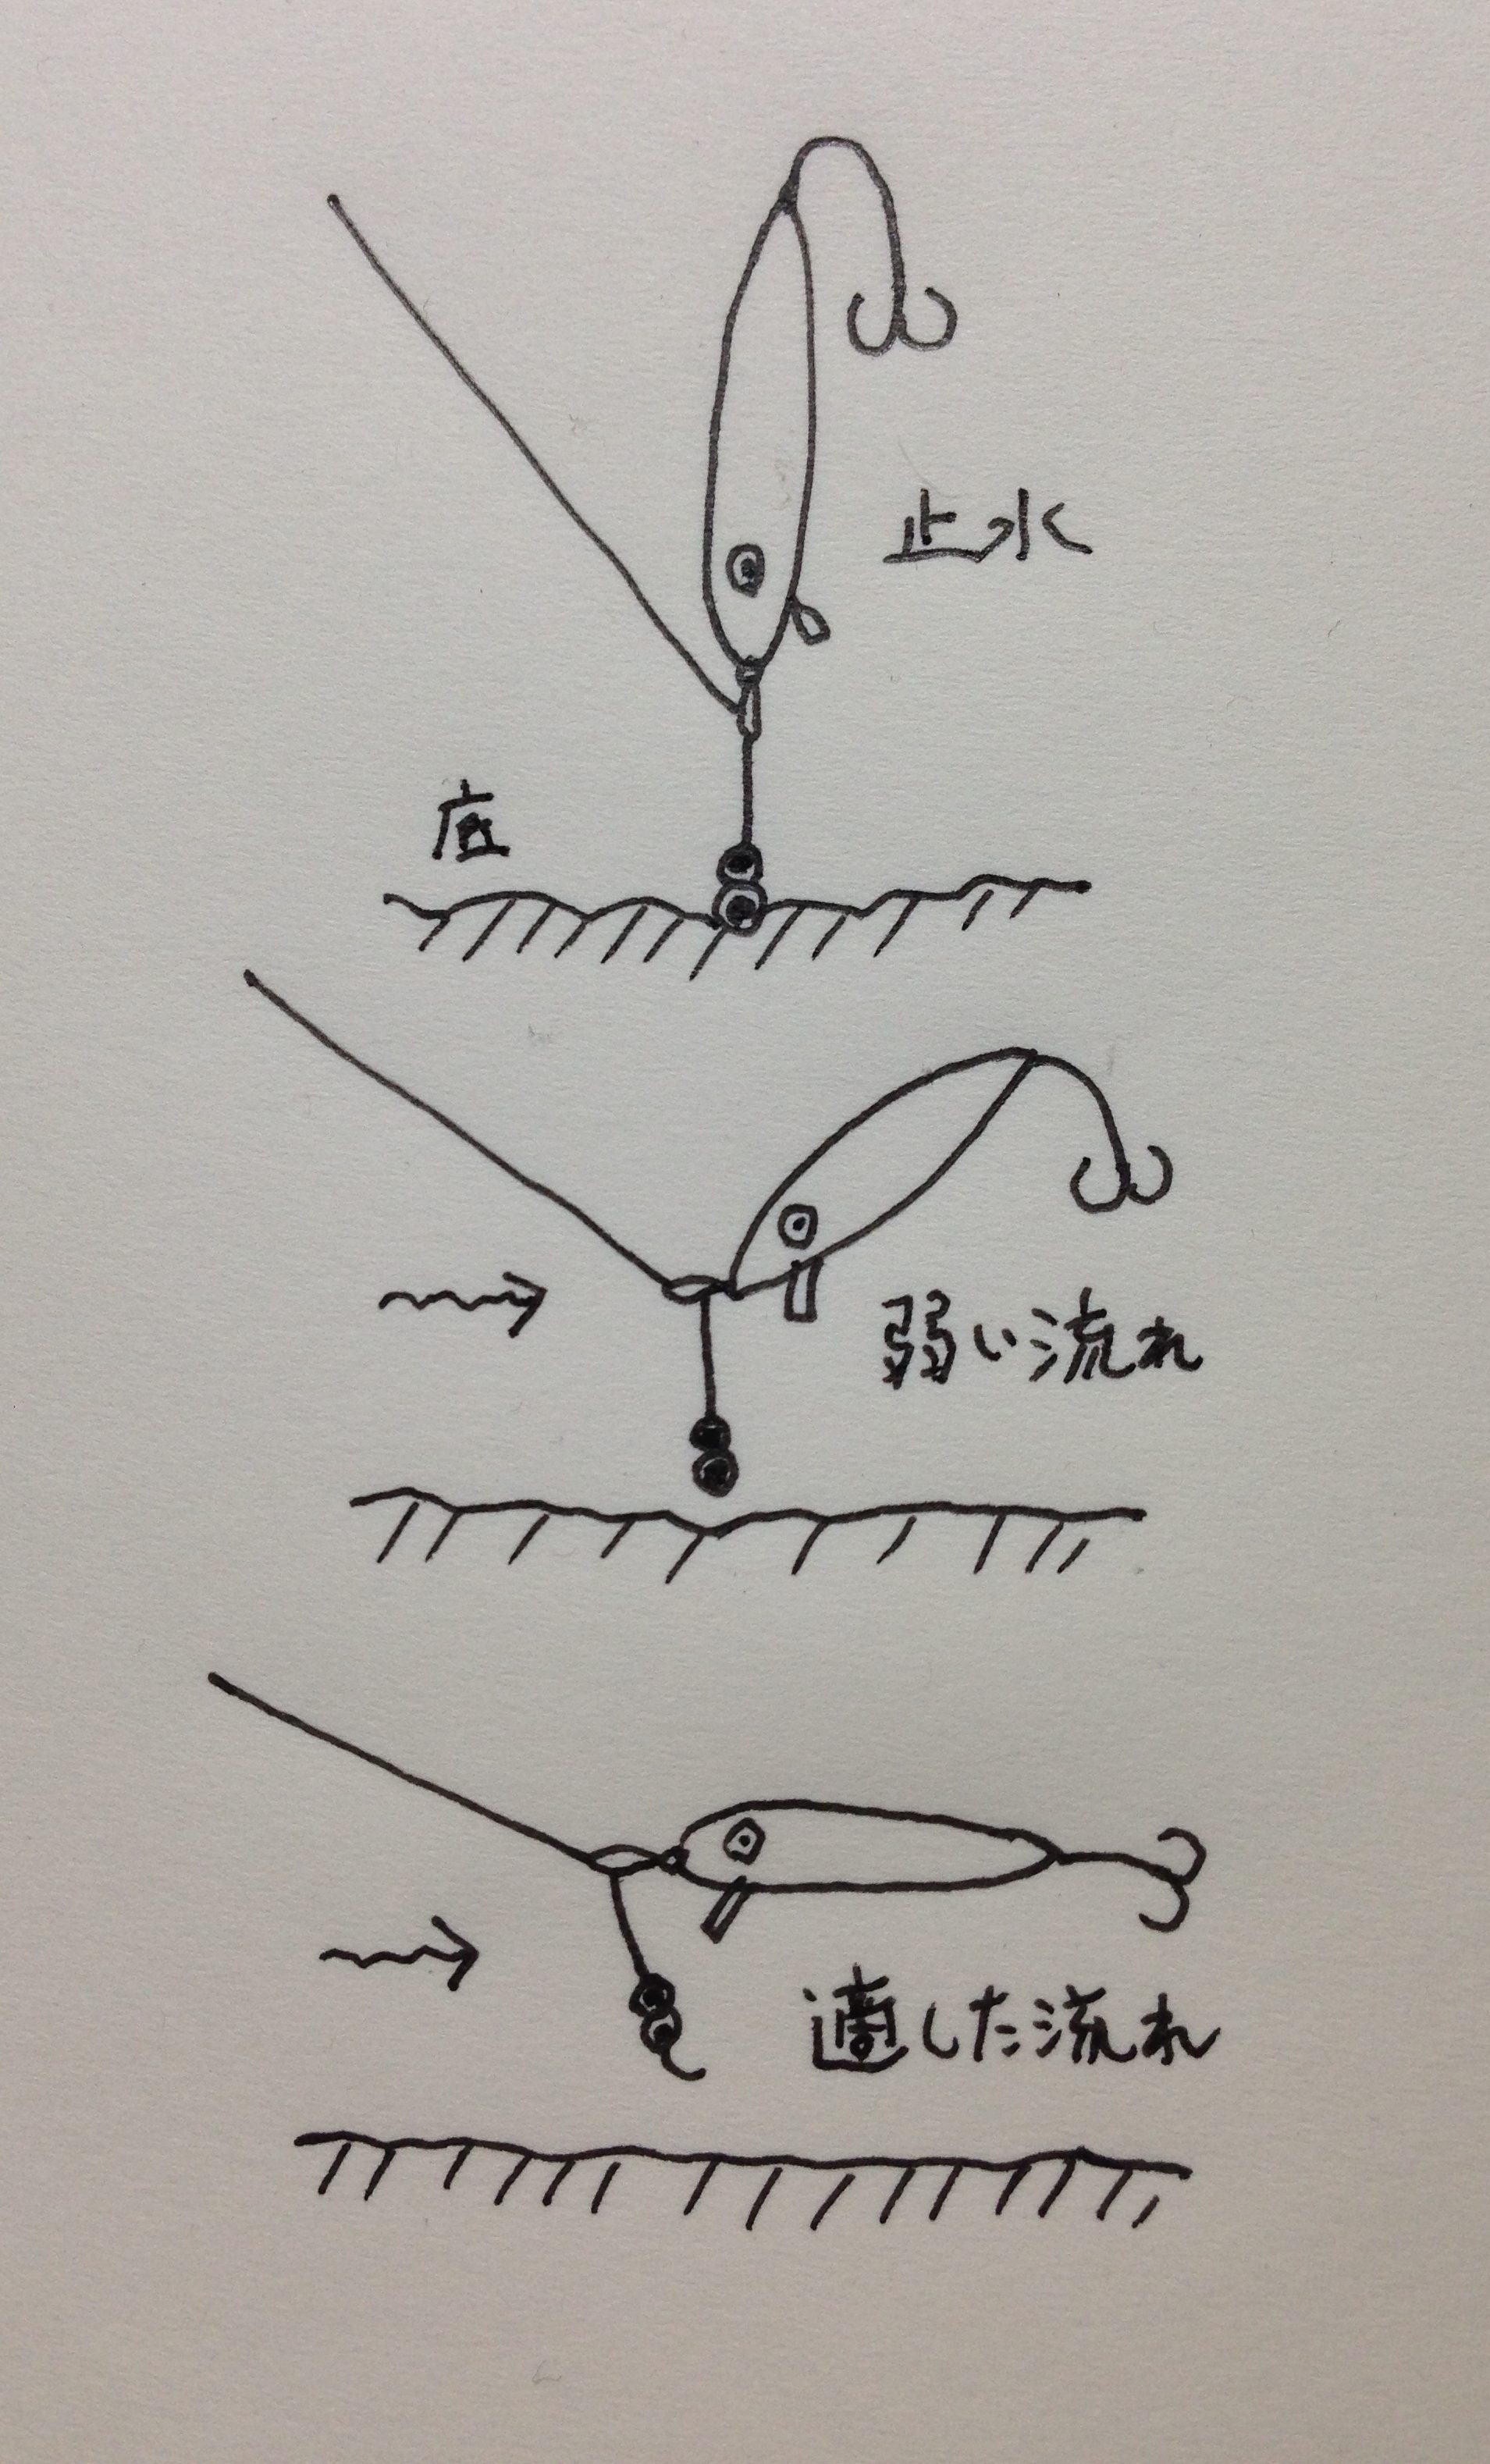 止水
底
弱い流れ
適した流れ